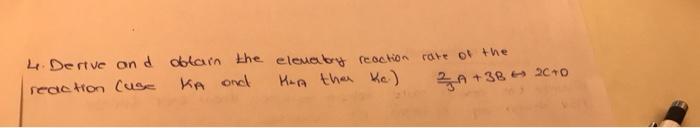 4. Derive and obtain the elevatry reaction rate of the
reaction (use KA and K-A then Ke) 2/3 A + 3B ↔ 2C+D